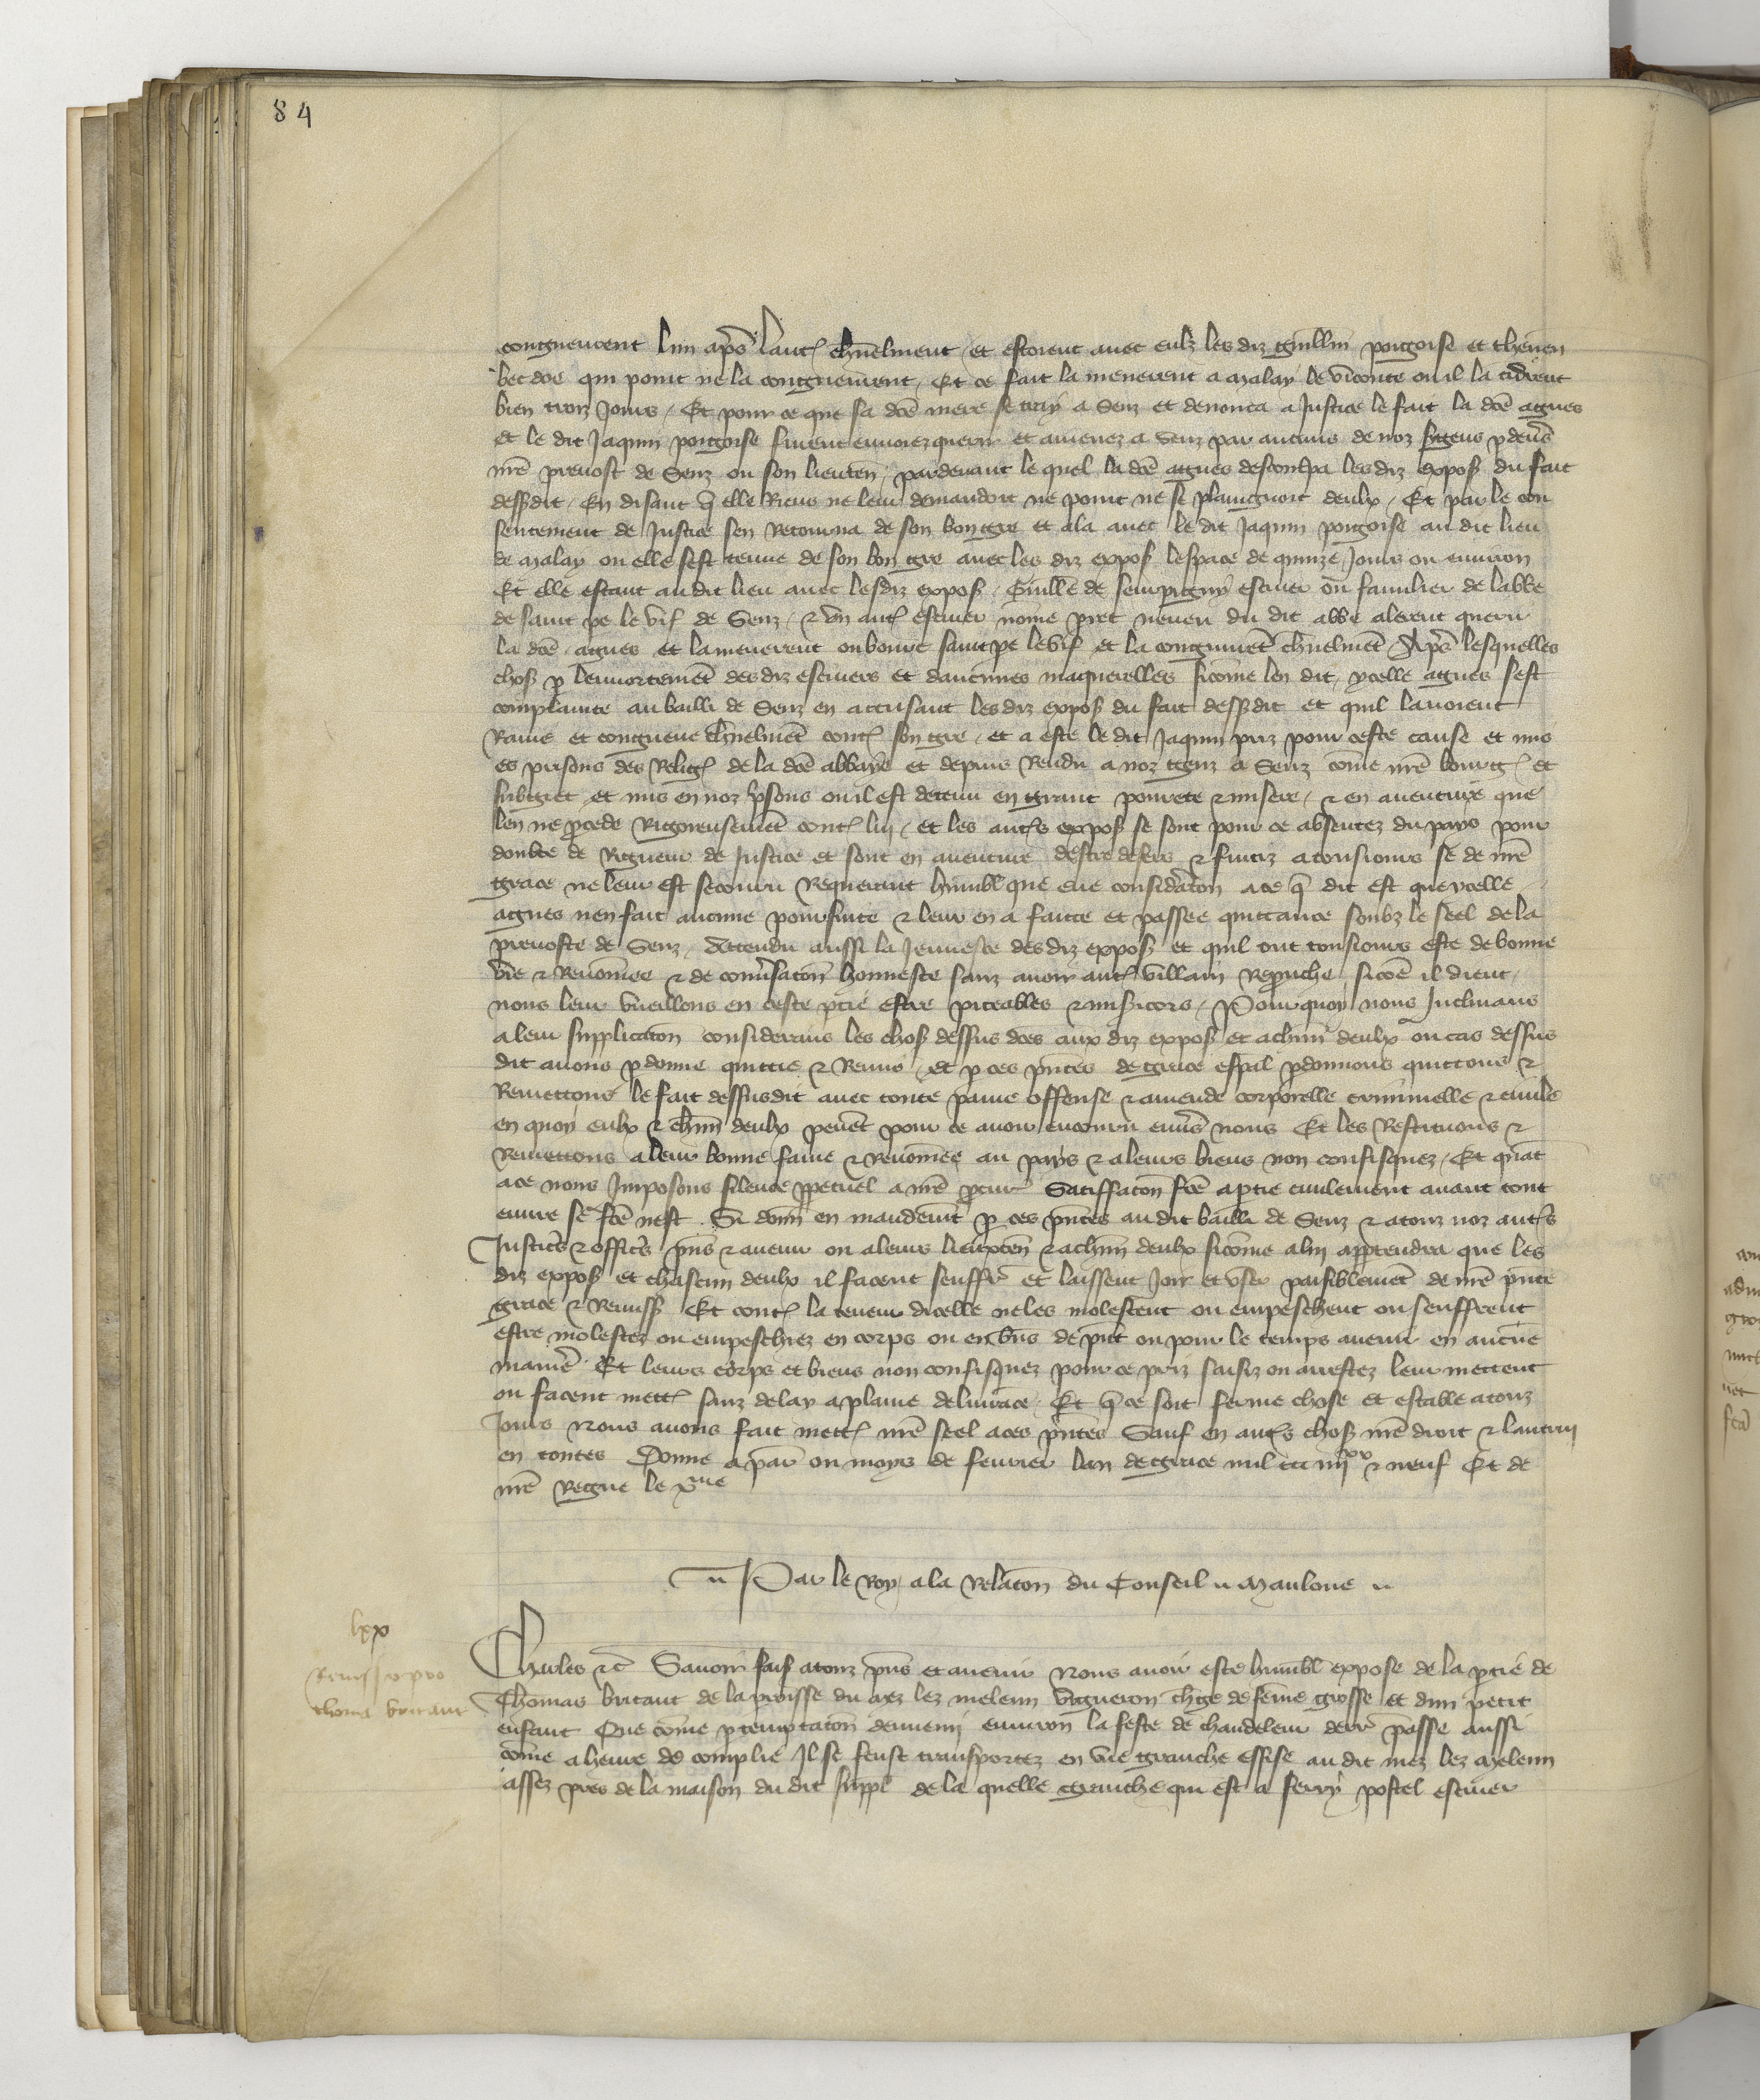 84
congneurent lun apres laut charnelment / et estoient avec eulz les diz guillin poigoise et thevenin
becdoe qui point ne la congneurent / Et ce fait la menerent a malay le viconte ou il la tidrent
bien trois Jours / Et pour ce que sa dce mere se tray a Senz et denonca a Justice le fait la dce agnes
et le dit Jaquin poigoise furent envoiez querir et amenez a Senz par aucuns de noz sergens p devers
nre prevost de Senz ou son lieuten / pardevant le quel la dce agnes descoulpa les diz expos du fait
dessdit / En disant q elle Riens ne leur demandoit ne point ne se plaingnoit deulx / Et par le con
sentement de Justice sen Retourna de son bon gre et ala avec le dit Jaquin poigoise au dit lieu
de malay ou elle sest tenue de son bon gre avec les diz expos lespace de quinze Jours ou environ
Et elle estant au dit lieu avec lesdiz expos / Guille de sempigny escuier ou familier de labbe
de saint pe le vif de Senz / & un aut escuier nome pret neveu du dit abbe alerent querir
la dce agnes et lamenerent ou bourc saint pe le vif et la congnurent chnelment Apres lesquelles
chos p lennortement des diz escuiers et daucunes maquerelles sicome len dit / ycelle agnes sest
complainte au bailli de Senz en accusant les diz expos du fait dessdit et quil lavoient
Ravie et congneue chnelment cont son gre / et a este le dit Jaquin priz pour ceste cause et mis
es prisons des Relig de la dce abbaye et depuis Rendu a noz genz a Senz come nre bourg et
subgiet et mis en noz prisons ou il est detenu en grant povrete & misere / & en aventure que
len ne pcede Rigoreusement cont luy / et les autrs expos se sont pour ce absentez du pays pour
doubte de Rigueur de Justice et sont en aventure destre desers & fuitiz a tousiours se de nre
grace ne leur est secouru Requerant humbl que eue consideracon a ce q dit est que ycelle
agnes nen fait aucune poursuite & leur en a faitte et passee quittance soubz le seel de la
prevoste de Senz / Attendu aussi la Jeunesce des diz expos et quil ont tousiours este de bonne
vie & Renomee & de conversacon honneste sanz avoir aut villain Reprouche sicoe il dient
nous leur vueillons en ceste ptie estre piteables & misicors / Pour quoy nous Inclinans
a leur supplicacon considerans les chos dessus does aux diz expos et a chun deulx ou cas dessus
dit avons p donne quittie & Remis / et p ces pntes de grace espal pdonnons quittons &
Remettons le fait dessusdit avec toute paine offense & amende corporelle criminelle & civile
en quoy eulx & chun deulx pevent pour ce avoir encouru envrs nous Et les Restituons &
Remettons a leur bonne fame & renomee au pays & a leurs biens non confisquez / Et quat
a ce nous Imposons silence ppetuel a nre pcur Satiffacon fce a ptie civilement avant tout
euvre se fce nest Si donn en mandement p ces pntes au dit bailli de Senz & a touz noz autrs
Justicrs & officrs pns & avenir ou a leurs lieuxten & a chun deulx sicome a luy appartendra que les
diz expos et chascun deulx il facent seuffrir et laissent Joir et user paisiblement de nre pnte
grace & Remiss Et cont la teneur dicelle ne les molestent ou empeschent ou seuffrent
estre molestez ou empeschiez en corps ou en biens de pnt ou pour le temps avenir en aucune
maniere Et leurs corps et biens non confisquez pour ce priz saisiz ou arrestez leur mettent
ou facent mett sanz delay a plaine delivrace / Et q ce soit ferme chose et estable a touz
Jours Nous avons fait mett nre seel a ces pntes Sauf en autrs chos nre droit & lautruy
en toutes Donne a par ou moys de fevrier lan de grace mil ccc iiij xx & neuf Et de
nre Regne le xme
Par le Roy a la Relacon du Conseil Mauloue
lxx
Remissio pro
thoma britaut
Charles &c Savoir fais a touz pns et avenir Nous avoir este humbl expose de la ptie de
Thomas britaut de la proisse du mez lez meleun vigneron chge de feme grosse et dun petit
enfant Que come p temptacon dennemy environ la feste de chandeleur derr passe aussi
come a heure de complie Il se feust transportez en une granche assise au dit mez lez meleun
assez pres de la maison du dit suppl de la quelle granche qui est a ferry postel escuier